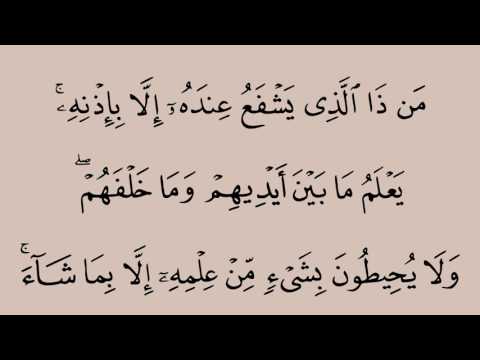 مَن ذَا ٱلَّذِى يَشۡفَعُ عِندَهُۥٓ إِلَّا بِإِذۡنِهِۦۚ
يَعۡلَمُ مَا بَيۡنَ أَيۡدِيهِمۡ وَمَا خَلۡفَهُمۡۖ
وَلَا يُحِيطُونَ بِشَىۡءٍ مِّنۡ عِلۡمِهِۦٓ إِلَّا بِمَا شَآءَۚ